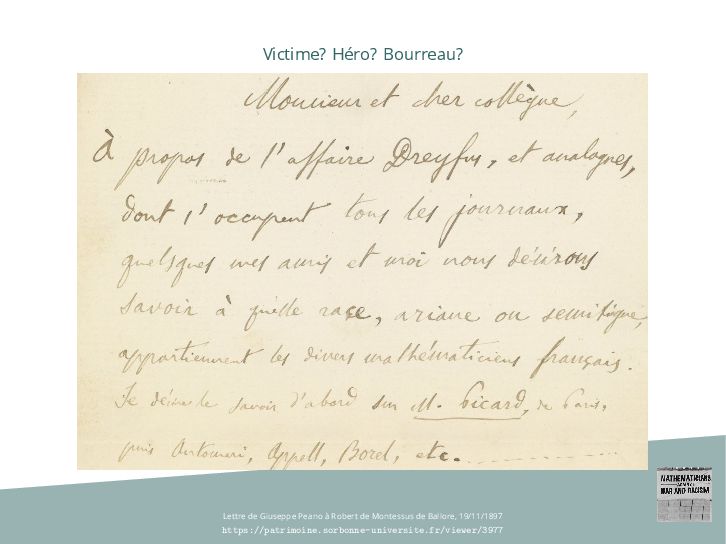 Victime? Héro? Bourreau?
Monsieur et cher collègue,
À propos de l'affaire Dreyfus, et analogues,
dont s'occupent tous les journaux,
quelques mes amis et moi nous désirons
savoir à quelle race, ariane ou semitique,
appartiennent les divers mathématiciens français.
Je désire de savoir d'abord sur M. Picard, de Paris,
puis Antomari, Appell, Borel, etc.
MATHEMATICIANS
AGAINST
WAR AND RACISM
Lettre de Giuseppe Peano à Robert de Montessus de Ballore, 19/11/1897
https://patrimoine.sorbonne-universite.fr/viewer/3977